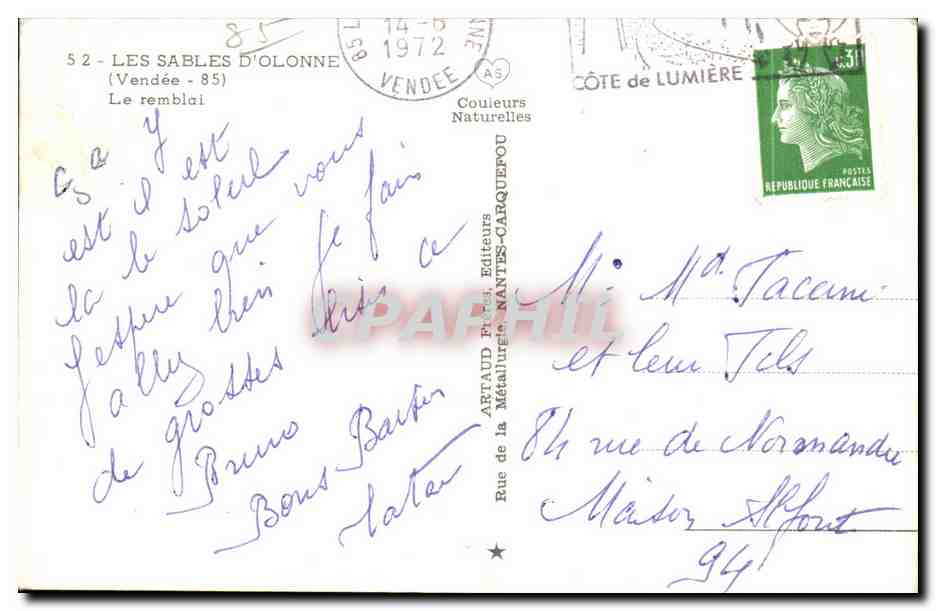 85
52 - LES SABLES D'OLONNE
(Vendée - 85)
Le remblai
14-6
1972
VENDEE
AS
Couleurs
Naturelles
CÔTE de LUMIÈRE
POSTES
REPUBLIQUE FRANÇAISE
ça y
est il est
la le soleil
J espere que vous
allez bien Je fais
de grosses bises a
Bruno
Bons Baisers
tata
ARTAUD Frères, Editeurs
Rue de la Métallurgie, NANTES-CARQUEFOU
EPAPHIL
M. Md. Tacemi
et leur Fils
84 rue de Normandie
Maison Alfort
94